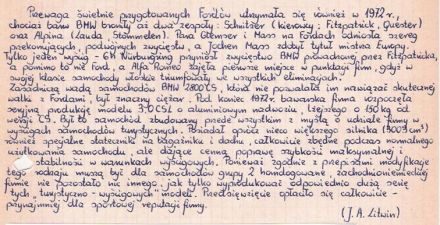 Przewaga świetnie przygotowanych Fordów utrzymała się również w 1972 r.,
chociaż barw BMW broniły aż dwa zespoły: Schnitzer (kierowcy: Fitzpatrick, Quester)
oraz Alpina (Lauda, Stommelen). Para Glemser i Mass na Fordach odniosła szereg
przekonujących, podwójnych zwycięstw, a Jochen Mass zdobył tytuł mistrza Europy.
Tylko jeden wyścig - 6H Nürburgring przyniósł zwycięstwo BMW prowadzonej przez Fitzpatricka,
a pomimo to nie Ford, a Alfa Romeo zajęła pierwsze miejsce w punktacji firm, gdyż w
swojej klasie samochody włoskie triumfowały we wszystkich eliminacjach.
Zasadniczą wadą samochodów BMW 2800 CS, która nie pozwalała im nawiązać skutecznej
walki z Fordami, był znaczny ciężar. Pod koniec 1972 r. bawarska firma rozpoczęła
seryjną produkcję modelu 3.0 CSL o aluminiowym nadwoziu, lżejszego o 150 kg od
wersji CS. Był to samochód zbudowany przede wszystkim z myślą o udziale firmy w
wyścigach samochodów turystycznych. Posiadał oprócz nieco większego silnika (3003 cm³)
również specjalne stateczniki na bagażniku i dachu, całkowicie zbędne podczas normalnego
użytkowania samochodu, ale dające cenną poprawę szybkości maksymalnej i
stabilności w warunkach wyścigowych. Ponieważ zgodnie z przepisami modyfikacje
tego rodzaju muszą być dla samochodów grupy 2 homologowane, zachodnioniemieckiej
firmie nie pozostało nic innego, jak tylko wyprodukować odpowiednio dużą serię
tych "turystyczno - wyścigowych" modeli. Przedsięwzięcie opłaciło się całkowicie -
przynajmniej dla sportowej reputacji firmy.
(J. A. Litwin)